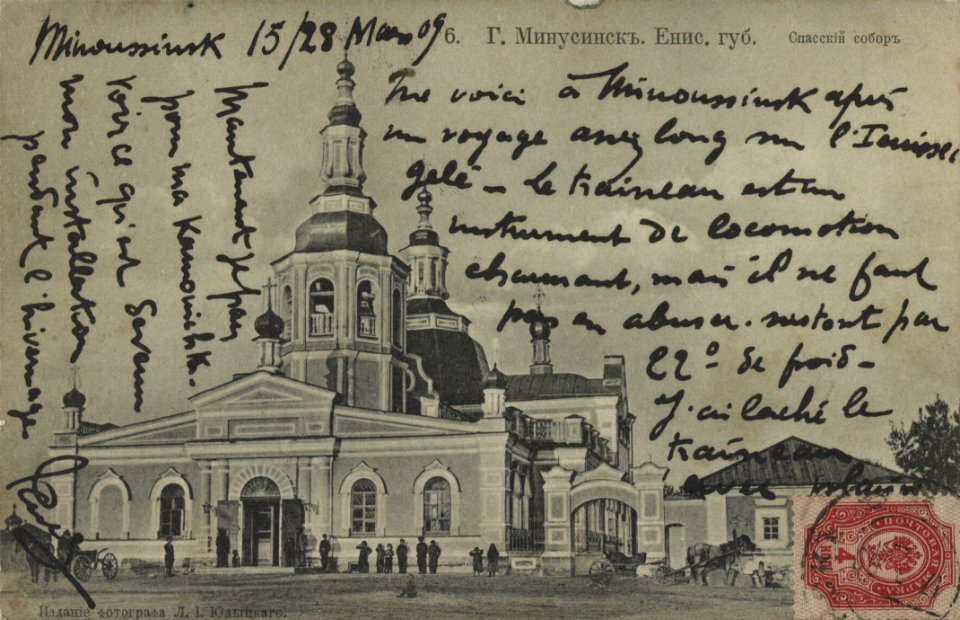 Minoussinsk 15/28 Mars 09
6. Г. Минусинскъ. Енис. губ. Спасскій соборъ
Me voici à Minoussinsk après
un voyage assez long sur l'Ienissei
gelé - Le traineau est un
instrument de locomotion
charmant, mais il ne faut
pas en abuser. surtout par
22° de froid -
J'ai laché le
traineau
avec
Maintenant je pars
pour ma
Voir ce qu'est devenu
mon installation
pendant l'hivernage
Изданіе фотографа Л. І.
4